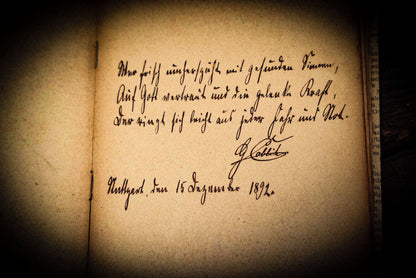 Wer frisch umherspäht mit gesunden Sinnen,
Auf Gott vertraut und die gelenke Kraft,
Der ringt sich leicht aus jeder Fahr und Not.
Stuttgart, den 15 Dezember 1892.